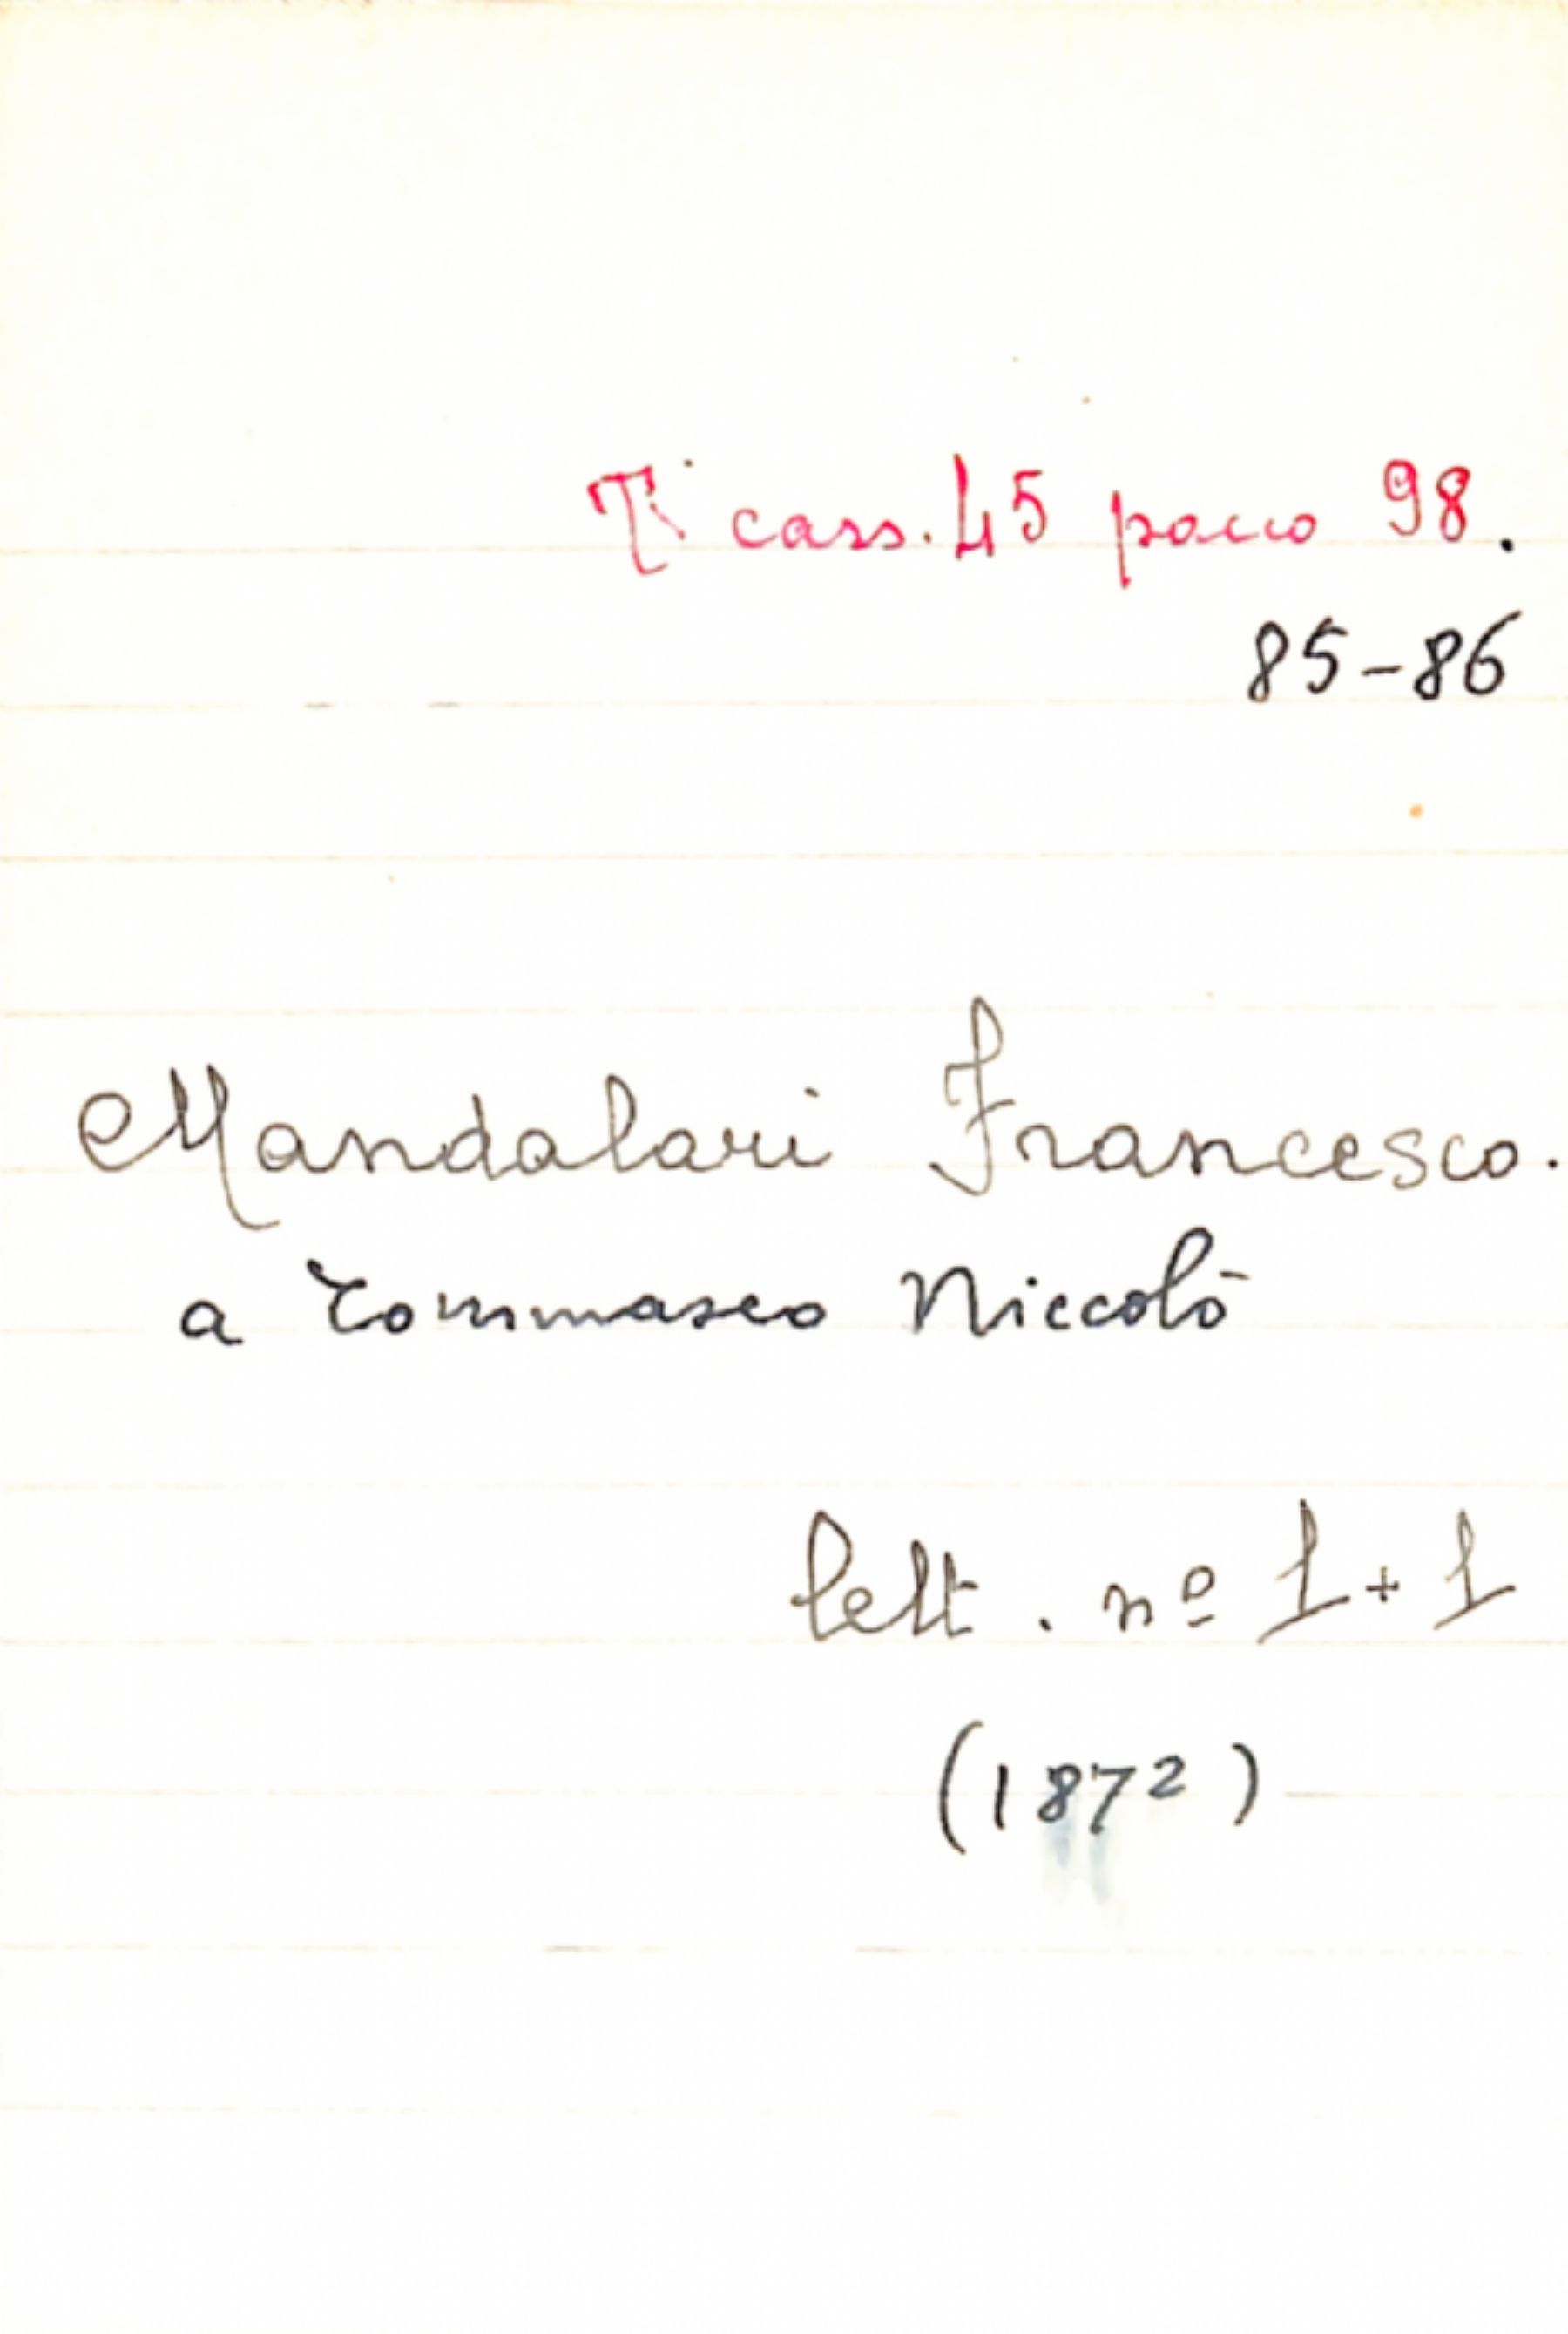 T. cass. 45 pacco 98.
85-86
Mandalari Francesco.
a Tommaseo Niccolò
lett. nº 1+1
(1872)